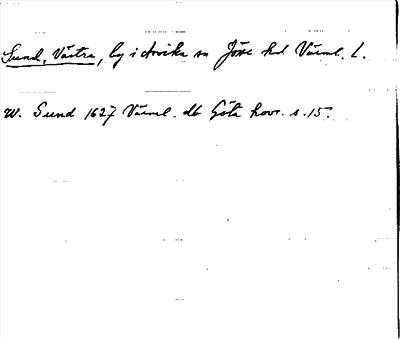 Sund, Västra, by i Arvika sn Jösse hd Värml. l.
W. Sund 1627 Värml. db Göta hovr. s. 15.